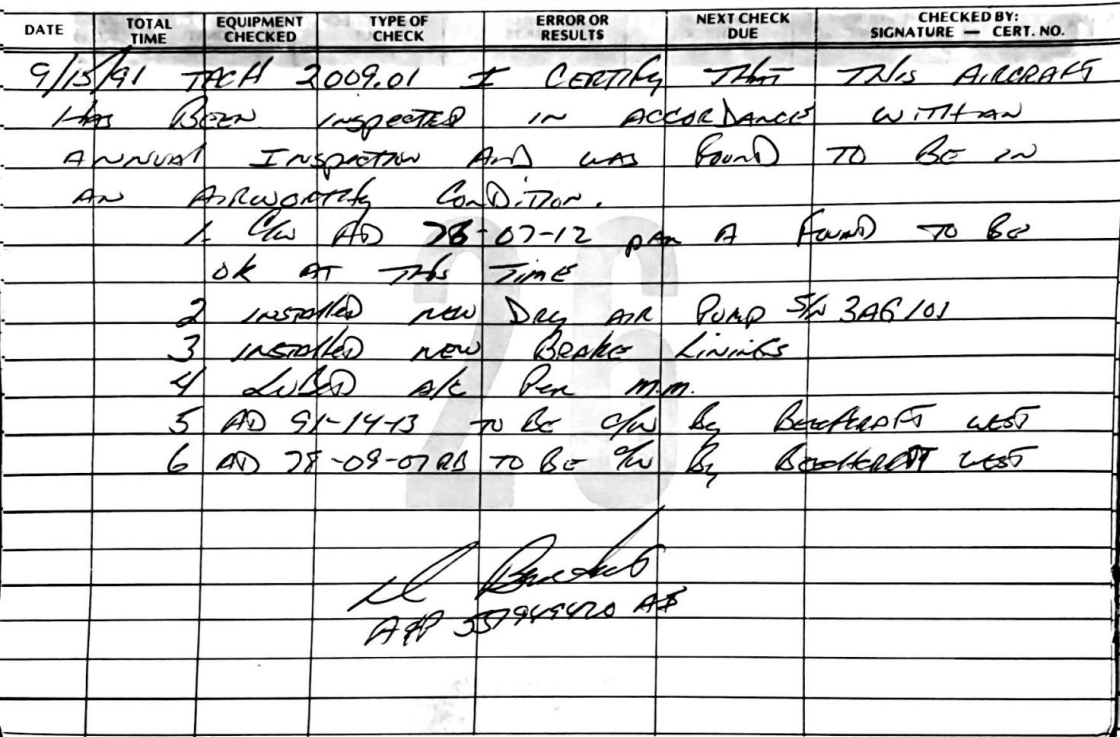 DATE TOTAL TIME EQUIPMENT CHECKED TYPE OF CHECK ERROR OR RESULTS NEXT CHECK DUE CHECKED BY: SIGNATURE — CERT. NO.
9/15/91 TACH 2009.01 I CERTIFY THAT THIS AIRCRAFT
HAS BEEN INSPECTED IN ACCORDANCE WITH AN
ANNUAL INSPECTION AND WAS FOUND TO BE IN
AN AIRWORTHY CONDITION.
1. C/W AD 78-07-12 PAR A FOUND TO BE
OK AT THIS TIME
2 INSTALLED NEW DRY AIR PUMP S/N 3AG101
3 INSTALLED NEW BRAKE LININGS
4 LUBED A/C PER M.M.
5 AD 91-14-13 TO BE C/W BY BEECHCRAFT WEST
6 AD 78-09-07R3 TO BE C/W BY BEECHCRAFT WEST
A&P
26